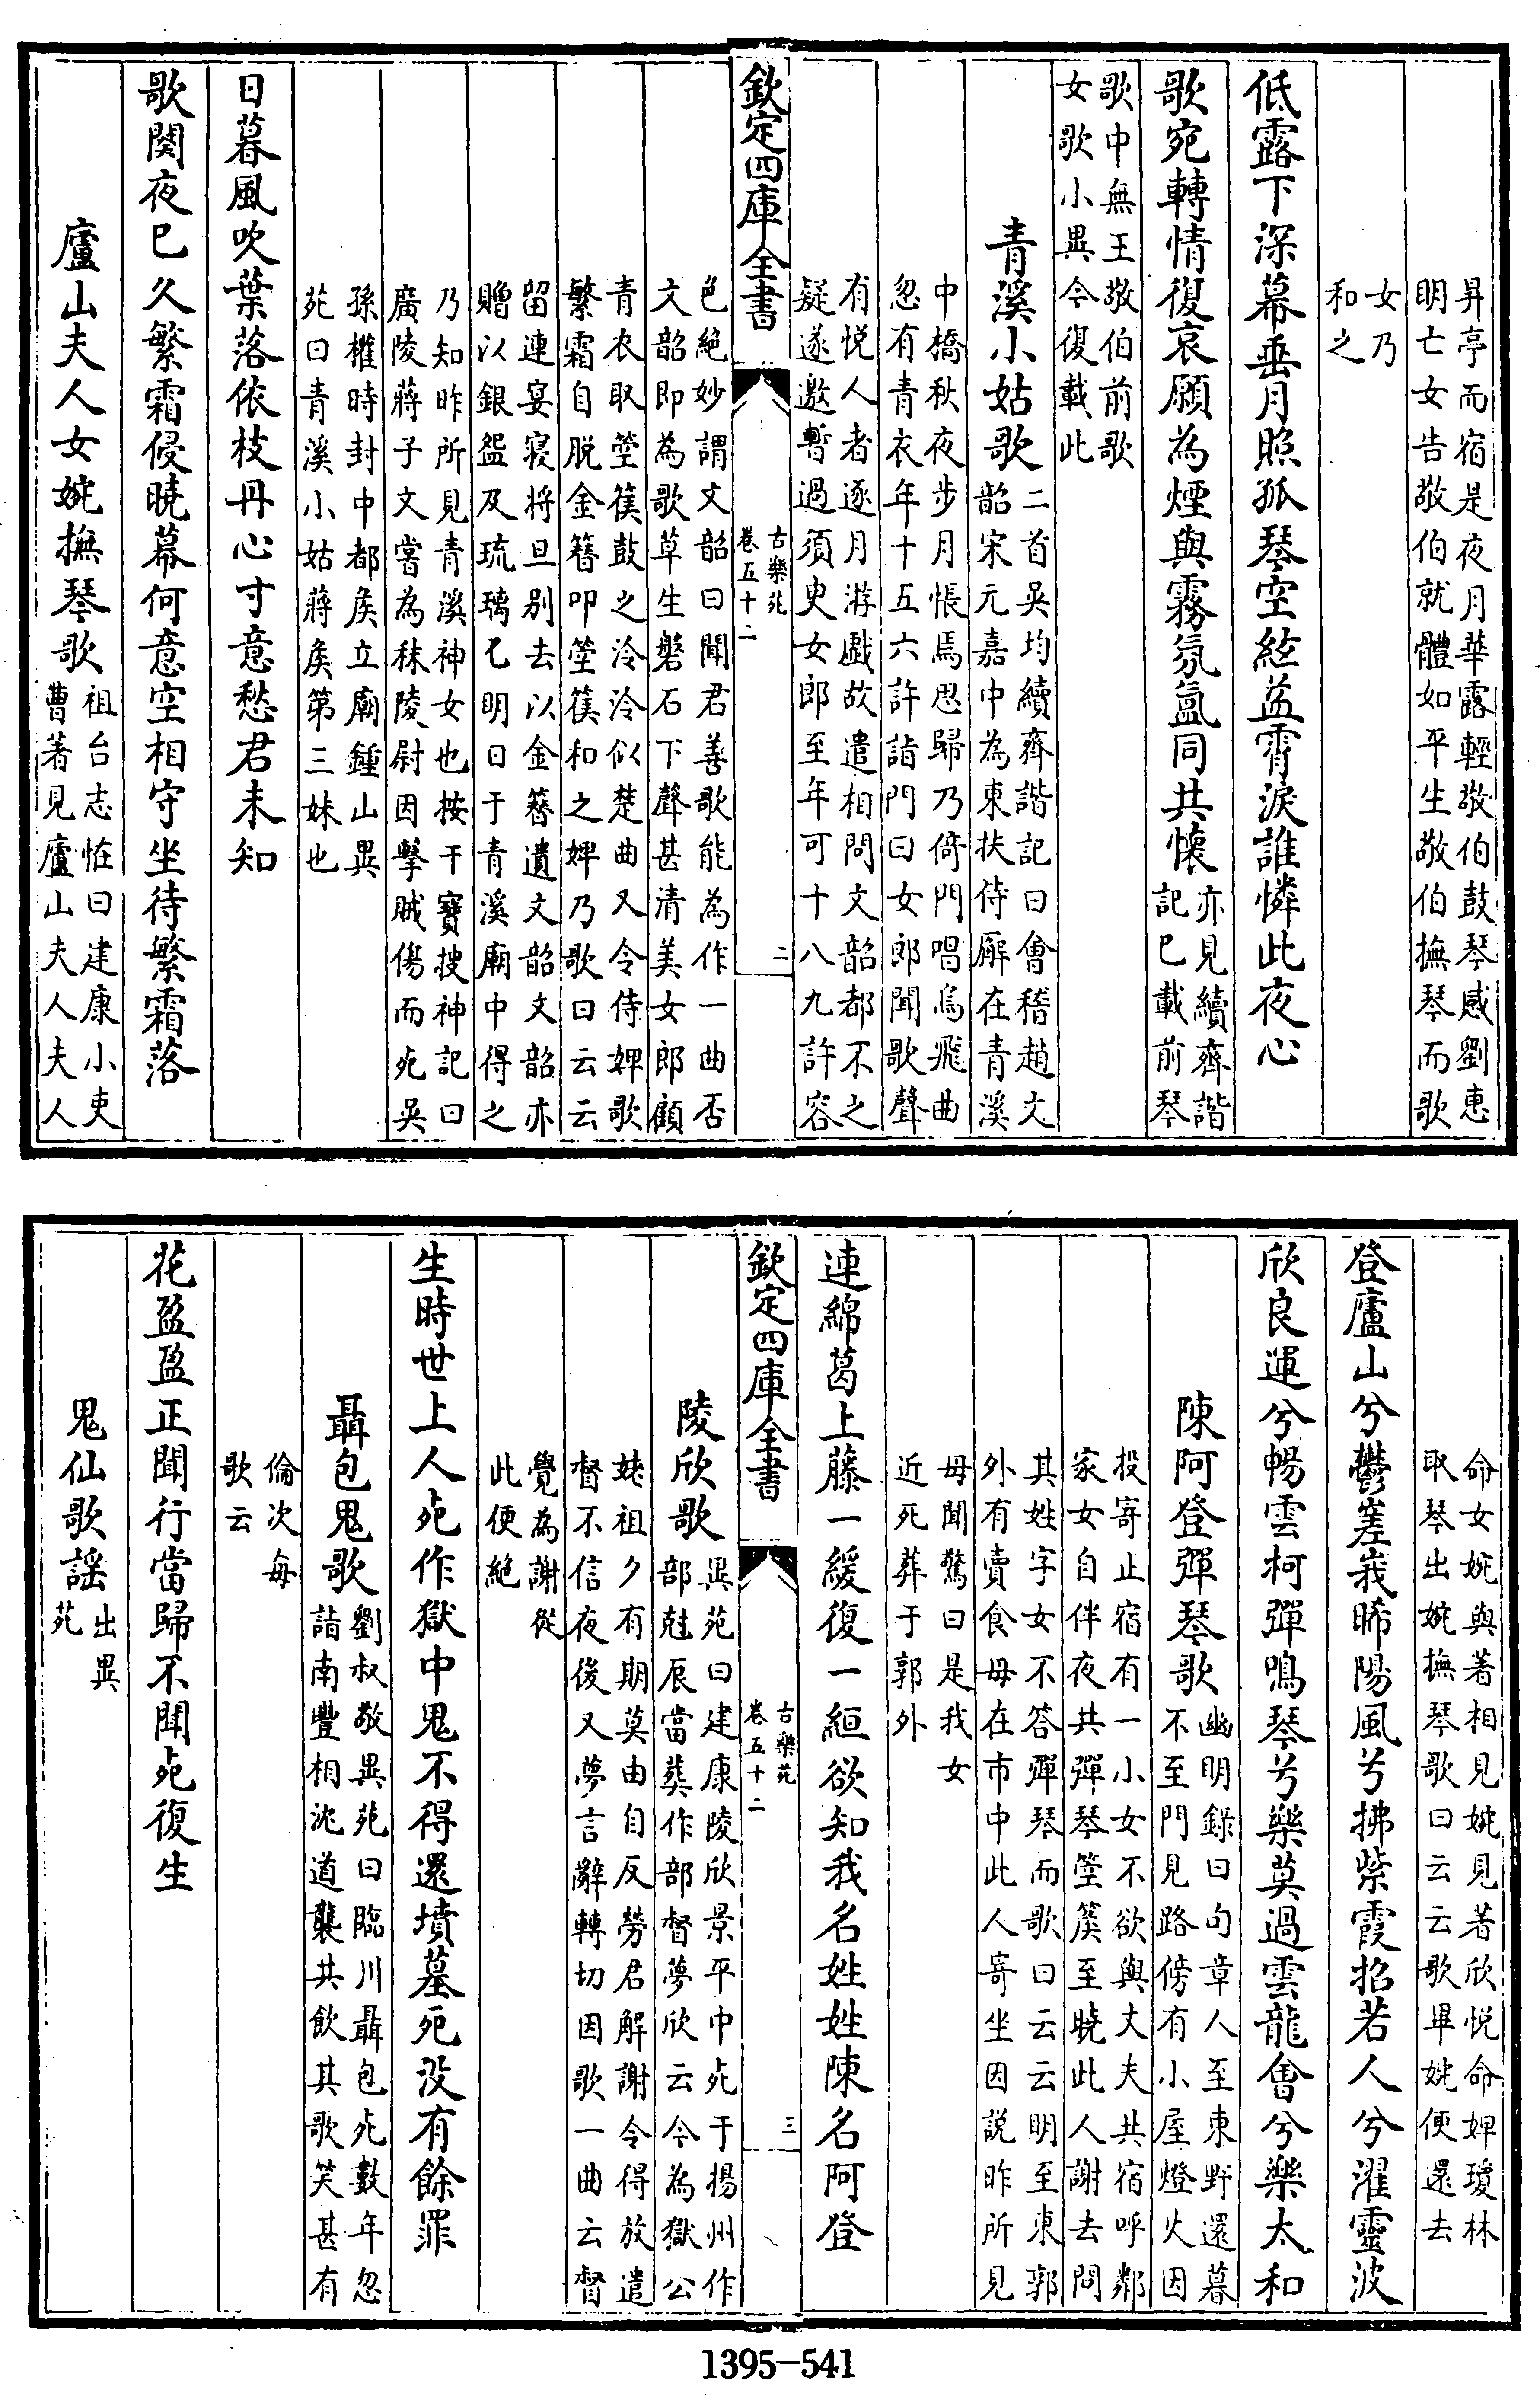 昇亭而宿是夜月華露輕敬伯鼓琴感劉惠
明亡女告敬伯就體如平生敬伯撫琴而歌
女乃
和之
低露下深幕垂月照孤琴空絃益霄淚誰憐此夜心
歌宛轉情復哀願為煙與霧氛氲同共懷
亦見續齊諧
記已載前琴
歌中無王敬伯前歌
女歌小異今復載此
青溪小姑歌
二首吳均續齊諧記曰會稽趙文
韶宋元嘉中為東扶侍廨在青溪
中橋秋夜步月悵焉思歸乃倚門唱烏飛曲
忽有青衣年十五六許詣門曰女郎聞歌聲
有悅人者逐月游戲故遣相問文韶都不之
疑遂邀暫過須臾女郎至年可十八九許容
欽定四庫全書
古樂苑
卷五十二
二
色絶妙謂文韶曰聞君善歌能為作一曲否
文韶即為歌草生磐石下聲甚清美女郎顧
青衣取箜篌鼓之泠泠似楚曲又令侍婢歌
繁霜自脱金簪叩箜篌和之婢乃歌曰云云
留連宴寢將旦别去以金簪遺文韶文韶亦
贈以銀盌及琉璃匕明日于青溪廟中得之
乃知昨所見青溪神女也按干寶搜神記曰
廣陵蔣子文嘗為秣陵尉因擊賊傷而死吳
孫權時封中都侯立廟鍾山異
苑曰青溪小姑蔣侯第三妹也
日暮風吹葉落依枝丹心寸意愁君未知
歌闋夜已久繁霜侵曉幕何意空相守坐待繁霜落
廬山夫人女婉撫琴歌
祖台志恠曰建康小吏
曹著見廬山夫人夫人
命女婉與著相見婉見著欣悅命婢瓊林
取琴出婉撫琴歌曰云云歌畢婉便還去
登廬山兮鬱嵳峩晞陽風兮拂紫霞招若人兮濯靈波
欣良運兮暢雲柯彈鳴琴兮樂莫過雲龍會兮樂太和
陳阿登彈琴歌
幽明錄曰句章人至東野還暮
不至門見路傍有小屋燈火因
投寄止宿有一小女不欲與丈夫共宿呼鄰
家女自伴夜共彈琴箜篌至曉此人謝去問
其姓字女不答彈琴而歌曰云云明至東郭
外有賣食母在市中此人寄坐因説昨所見
母聞驚曰是我女
近死葬于郭外
連綿葛上藤一緩復一絙欲知我名姓姓陳名阿登
欽定四庫全書
古樂苑
卷五十二
三
陵欣歌
異苑曰建康陵欣景平中死于揚州作
部尅辰當葬作部督夢欣云今為獄公
姥祖夕有期莫由自反勞君解謝令得放遣
督不信夜後又夢言辭轉切因歌一曲云督
覺為謝從
此便絶
生時世上人死作獄中鬼不得還墳墓死没有餘罪
聶包鬼歌
劉叔敬異苑曰臨川聶包死數年忽
詣南豐相沈道襲共飲其歌笑甚有
倫次每
歌云
花盈盈正聞行當歸不聞死復生
鬼仙歌謡
出異
苑
1395-541